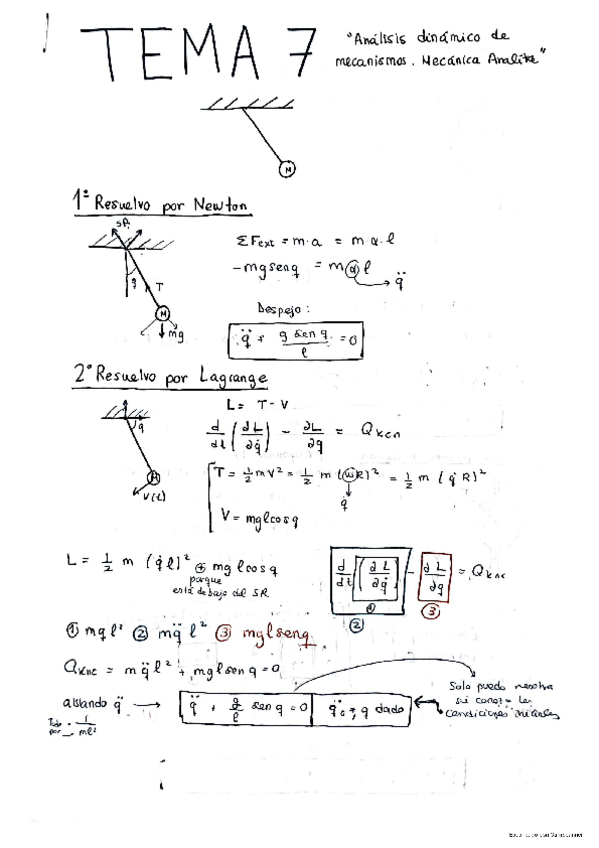 TEMA 7
"Análisis dinámico de
mecanismos. Mecánica Analítica"
M
1º Resuelvo por Newton
SR
q
T
M
mg
ΣFext = m·a = m·α·l
-mg sen q = m α l
q̈
Despejo:
q̈ + g sen q / l = 0
2º Resuelvo por Lagrange
q
M
v(t)
L = T - V
d/dt (∂L/∂q̇) - ∂L/∂q = Qknc
T = 1/2 mv² = 1/2 m (ωR)² = 1/2 m (q̇ R)²
q̇
V = mglcosq
L = 1/2 m (q̇ l)² + mglcosq
porque
está debajo del SR
d/dt (∂L/∂q̇) - ∂L/∂q = Qknc
① ② ③
① mq̇l² ② mq̈l² ③ mglsenq
Qknc = m q̈ l² + mglsen q = 0
aislando q̈ → q̈ + g/l sen q = 0
q dado
Solo puedo resolver
si
condiciones iniciales
Todo
por 1/ml²